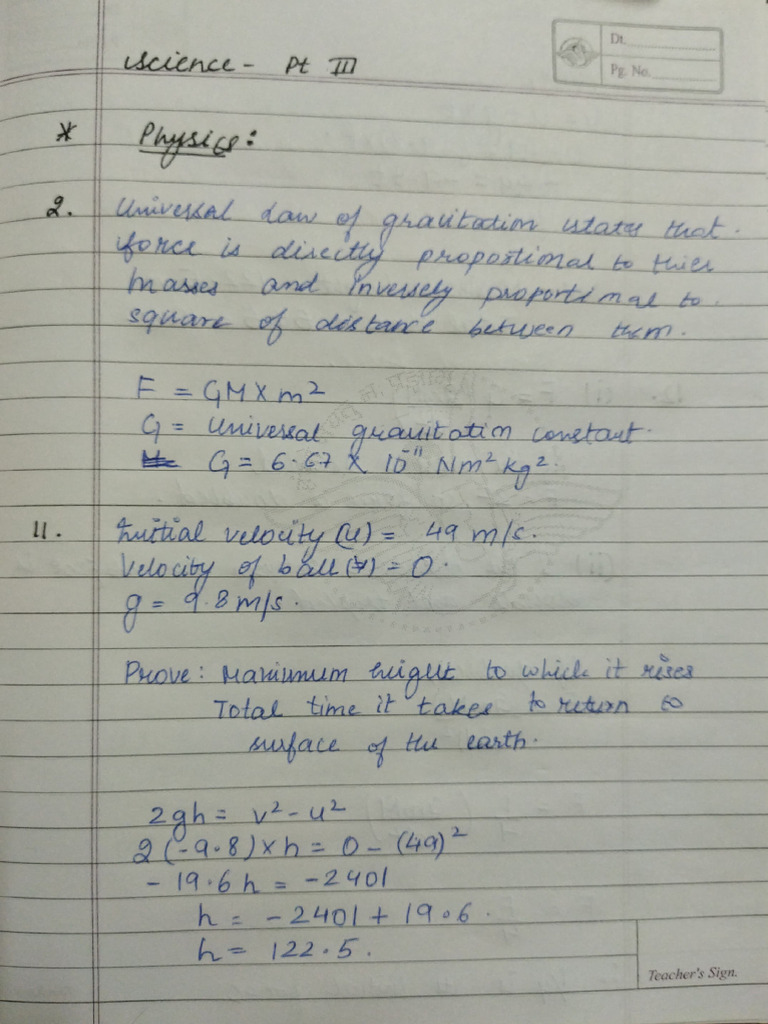 Science - Pt III
Dt.
Pg. No.
* Physics:
2. Universal Law of gravitation states that
force is directly proportional to thier
masses and inversely proportional to
square of distance between them.
F = GM X m²
G = Universal gravitation constant.
G = 6.67 X 10⁻¹¹ Nm² kg².
11. Initial velocity (u) = 49 m/s.
Velocity of ball (v) = 0.
g = 9.8 m/s.
Prove: Maximum height to which it rises
Total time it takes to return to
surface of the earth.
2gh = v² - u²
2(-9.8) x h = 0 - (49)²
- 19.6 h = -2401
h = -2401 + 19.6.
h = 122.5.
Teacher's Sign.